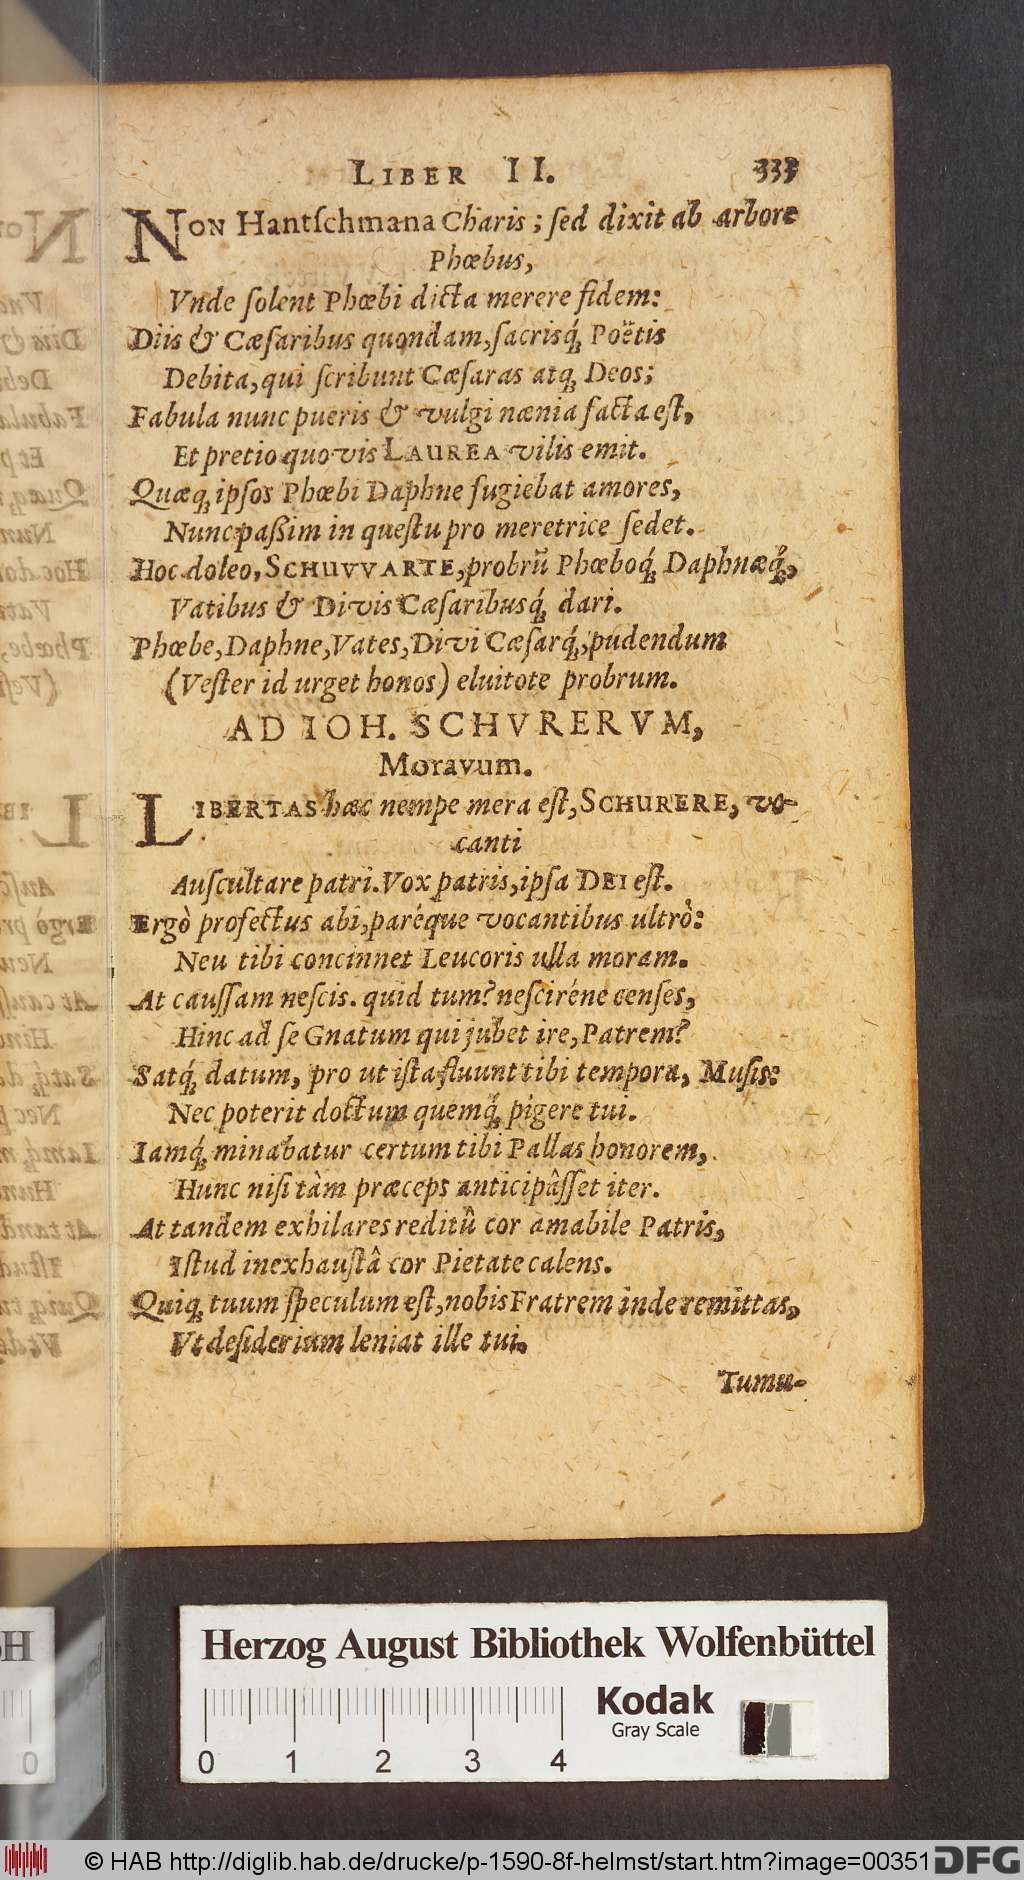 LIBER II. 333
NON Hantſchmana Charis; ſed dixit ab arbore
Phœbus,
Vnde ſolent Phœbi dicta merere fidem:
Diis & Cæſaribus quondam, ſacrisq́; Poëtis
Debita, qui ſcribunt Cæſaras atq; Deos;
Fabula nunc pueris & vulgi nænia facta eſt,
Et pretio quovis LAUREA vilis emit.
Quæq; ipſos Phœbi Daphne fugiebat amores,
Nunc paßim in queſtu pro meretrice ſedet.
Hoc doleo, SCHUVVARTE, probrū Phœboq́; Daphnæq́;,
Vatibus & Divis Cæſaribusq́; dari.
Phœbe, Daphne, Vates, Divi Cæſarq́;, pudendum
(Veſter id urget honos) eluitote probrum.
AD IOH. SCHVRERVM,
Moravum.
LIBERTAS hæc nempe mera eſt, SCHURERE, vo-
canti
Auſcultare patri. Vox patris, ipſa DEI eſt.
Ergò profectus abi, paréque vocantibus ultrò:
Neu tibi concinnet Leucoris ulla moram.
At cauſſam neſcis. quid tum? neſciréne cenſes,
Hinc ad ſe Gnatum qui jubet ire, Patrem?
Satq́; datum, pro ut iſta fluunt tibi tempora, Muſis:
Nec poterit doctum quemq́; pigere tui.
Iamq́; minabatur certum tibi Pallas honorem,
Hunc niſi tàm præceps anticipâſſet iter.
At tandem exhilares reditû cor amabile Patris,
Iſtud inexhauſtâ cor Pietate calens.
Quiq; tuum ſpeculum eſt, nobis Fratrem inde remittas,
Vt deſiderium leniat ille tui.
Tumu-
Herzog August Bibliothek Wolfenbüttel
Kodak
Gray Scale
0 1 2 3 4
0
© HAB http://diglib.hab.de/drucke/p-1590-8f-helmst/start.htm?image=00351 DFG